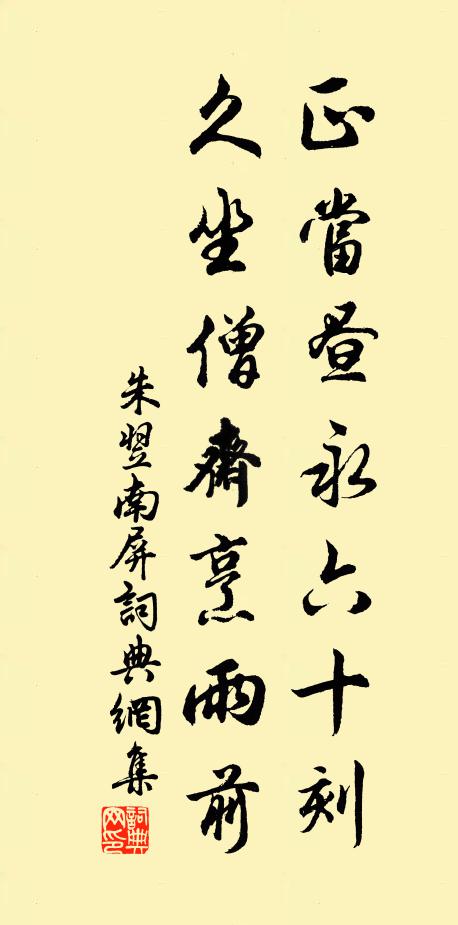 正當晝永六十刻
久坐僧齋烹雨前
朱翌南屏詞典網集
詞典網印